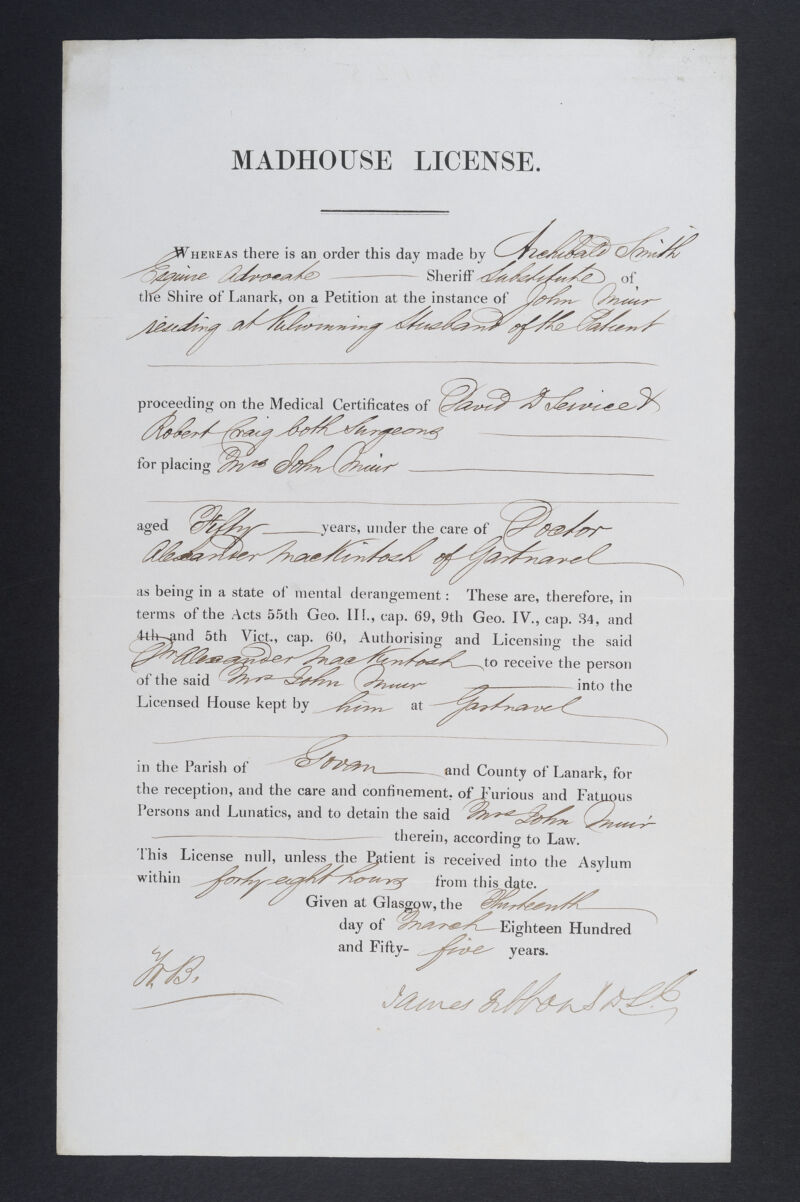 MADHOUSE LICENSE.
WHEREAS there is an order this day made by Archibald Smith
Esquire Advocate Sheriff Substitute of
the Shire of Lanark, on a Petition at the instance of John Muir
residing at Kilwinning Husband of the Patient
proceeding on the Medical Certificates of David D Service &
Robert Craig both Surgeons
for placing Mrs John Muir
aged Fifty years, under the care of Doctor
Alexander MacKintosh of Gartnavel
as being in a state of mental derangement: These are, therefore, in
terms of the Acts 55th Geo. III., cap. 69, 9th Geo. IV., cap. 34, and
4th and 5th Vict., cap. 60, Authorising and Licensing the said
Dr Alexander MacKintosh to receive the person
of the said Mrs John Muir into the
Licensed House kept by him at Gartnavel
in the Parish of Govan and County of Lanark, for
the reception, and the care and confinement, of Furious and Fatuous
Persons and Lunatics, and to detain the said Mrs John Muir
therein, according to Law.
This License null, unless the Patient is received into the Asylum
within forty eight hours from this date.
Given at Glasgow, the Thirteenth
day of March Eighteen Hundred
and Fifty- five years.
James